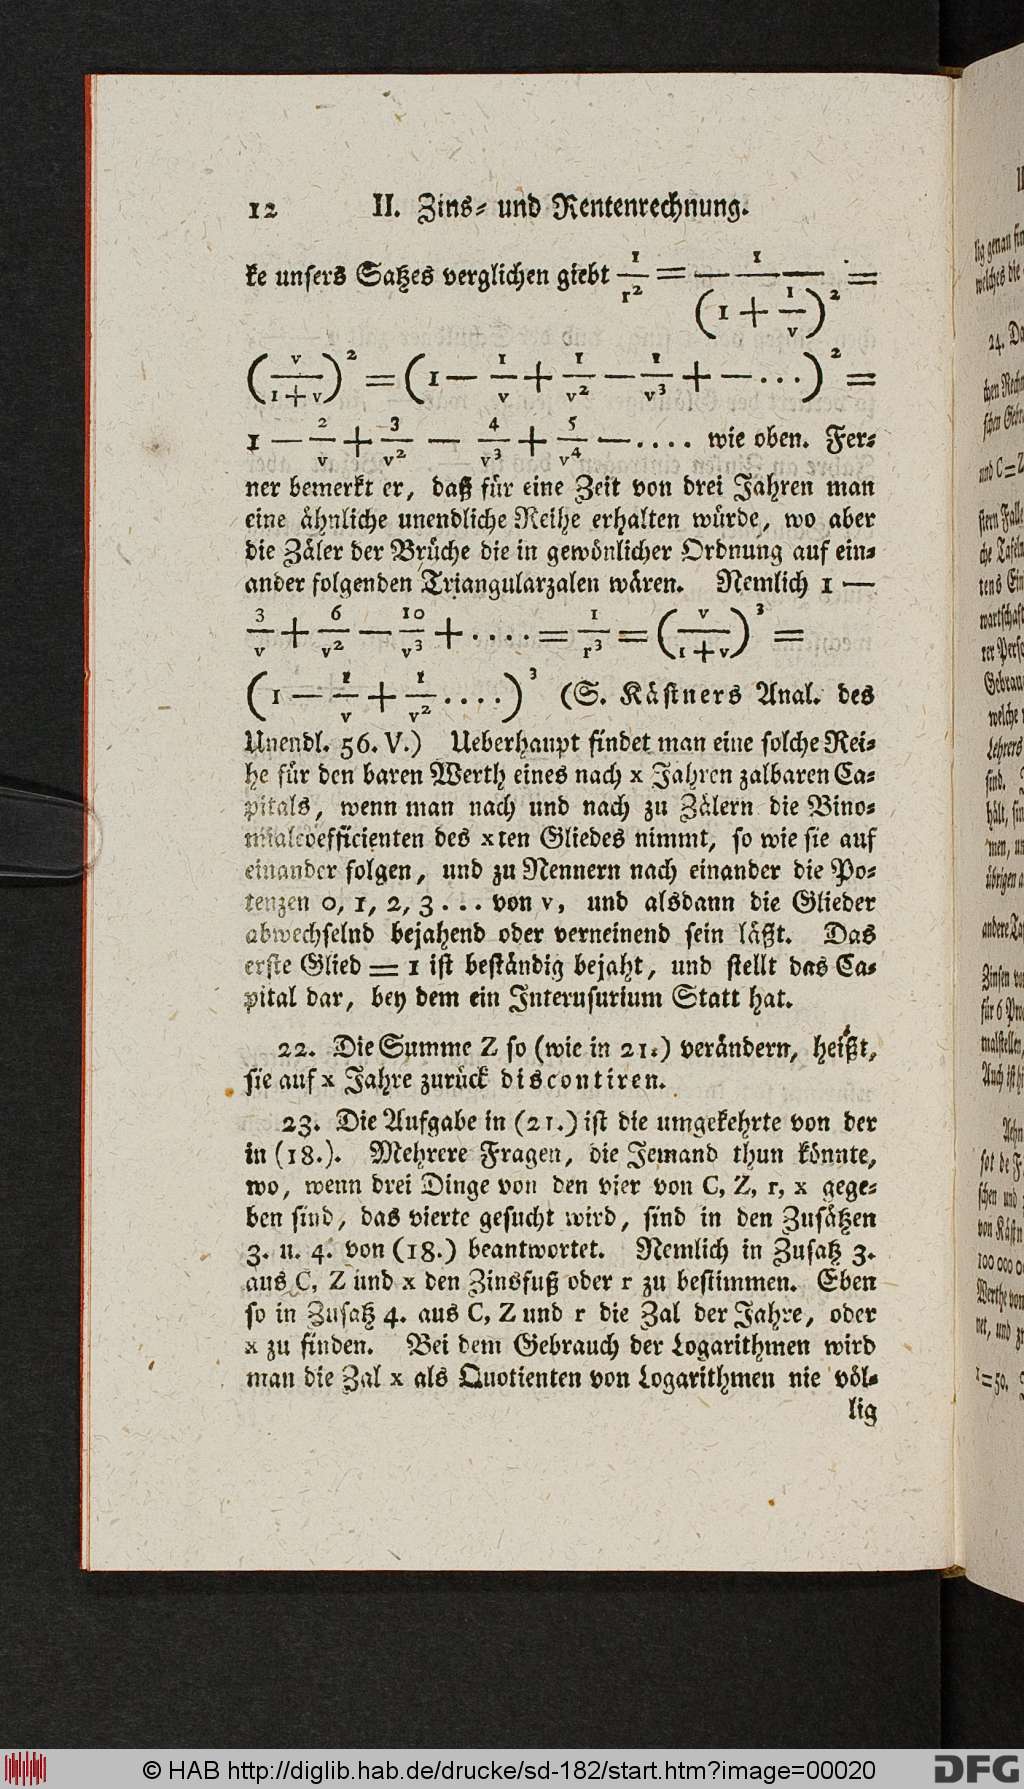 12 II. Zins- und Rentenrechnung.
ke unsers Satzes verglichen giebt 1/r² = 1/(1 + 1/v)² =
(v/(1+v))² = (1 — 1/v + 1/v² — 1/v³ + — ...)² =
1 — 2/v + 3/v² — 4/v³ + 5/v⁴ — .... wie oben. Fer-
ner bemerkt er, daß für eine Zeit von drei Jahren man
eine ähnliche unendliche Reihe erhalten würde, wo aber
die Zäler der Brüche die in gewönlicher Ordnung auf ein-
ander folgenden Triangularzalen wären. Nemlich 1 —
3/v + 6/v² — 10/v³ + .... = 1/r³ = (v/(1+v))³ =
(1 — 1/v + 1/v² ....)³ (S. Kästners Anal. des
Unendl. 56. V.) Ueberhaupt findet man eine solche Rei-
he für den baren Werth eines nach x Jahren zalbaren Ca-
pitals, wenn man nach und nach zu Zälern die Bino-
mialcoefficienten des xten Gliedes nimmt, so wie sie auf
einander folgen, und zu Nennern nach einander die Po-
tenzen 0, 1, 2, 3 ... von v, und alsdann die Glieder
abwechselnd bejahend oder verneinend sein läßt. Das
erste Glied = 1 ist beständig bejaht, und stellt das Ca-
pital dar, bey dem ein Interusurium Statt hat.
22. Die Summe Z so (wie in 21.) verändern, heißt,
sie auf x Jahre zurück discontiren.
23. Die Aufgabe in (21.) ist die umgekehrte von der
in (18.). Mehrere Fragen, die Jemand thun könnte,
wo, wenn drei Dinge von den vier von C, Z, r, x gege-
ben sind, das vierte gesucht wird, sind in den Zusätzen
3. u. 4. von (18.) beantwortet. Nemlich in Zusatz 3.
aus C, Z und x den Zinsfuß oder r zu bestimmen. Eben
so in Zusatz 4. aus C, Z und r die Zal der Jahre, oder
x zu finden. Bei dem Gebrauch der Logarithmen wird
man die Zal x als Quotienten von Logarithmen nie völ-
lig
© HAB http://diglib.hab.de/drucke/sd-182/start.htm?image=00020
DFG